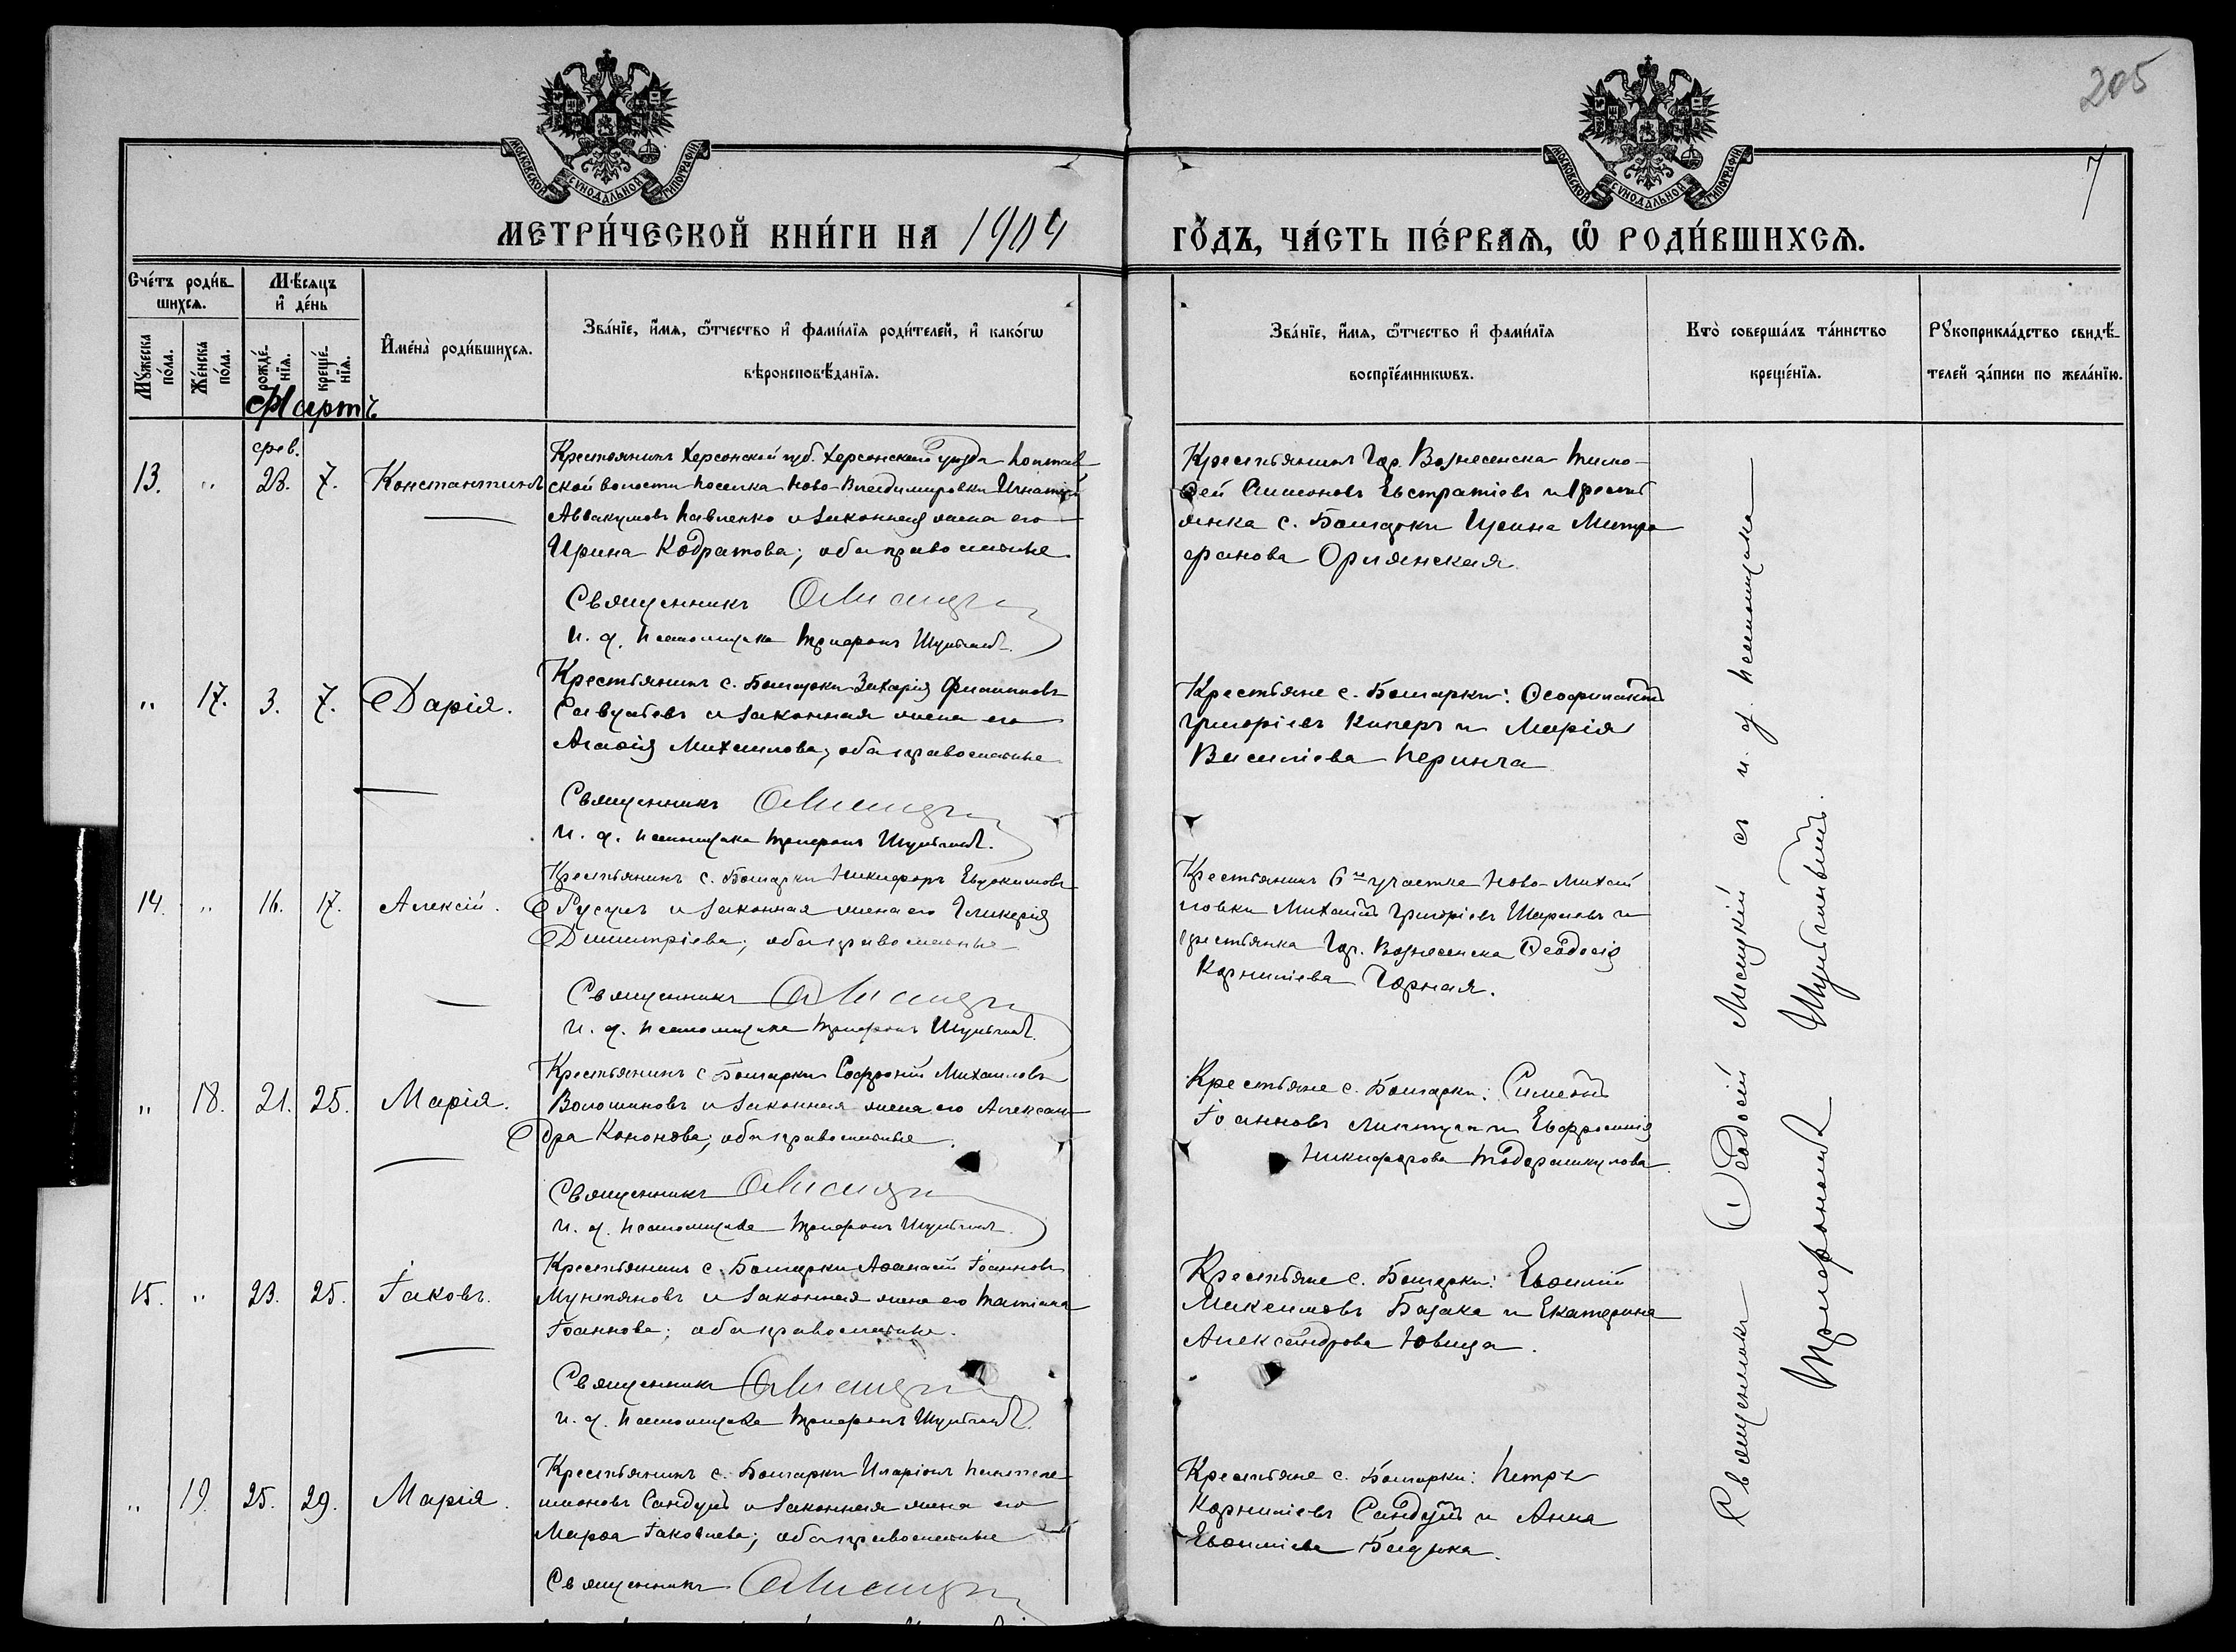 205
7
МОСКОВСКОЙ СѴНОДАЛЬНОЙ ТИПОГРАФІИ
МОСКОВСКОЙ СѴНОДАЛЬНОЙ ТИПОГРАФІИ
МЕТРИ́ЧЕСКОЙ КНИ́ГИ НА 1904
ГО́ДЪ, ЧА́СТЬ ПЕ́РВАѦ, Ѡ РОДИ́ВШИХСѦ.
Сче́тъ роди́в-
шихсѧ.
Мꙋ́жеска по́ла.
Же́нска по́ла.
Мѣ́сѧцъ
и҆ де́нь
рожде́-нїѧ.
креще́-нїѧ.
И҆мена̀ роди́вшихсѧ.
Зва́нїе, и҆́мѧ, ѻ҆́тчество и҆ фами́лїѧ роди́телей, и҆ како́гѡ
вѣроисповѣ́данїѧ.
Зва́нїе, и҆́мѧ, ѻ҆́тчество и҆ фами́лїѧ
воспрїе́мникѡвъ.
Кто̀ соверша́лъ та́инство
креще́нїѧ.
Рꙋкоприкла́дство свидѣ́-
телей за́писи по жела́нїю.
Мартъ
фев.
13. " 28. 7. Константинъ
Крестьянинъ Херсонской губ. Херсонскаго уѣзда
ской волости поселка Ново-Владимировки Игнатій
Аввакумовъ Павленко и законная жена его
Ирина Кодратова; оба православные
Священникъ
И. д. псаломщика Трифонъ
Крестьянинъ гор. Вознесенска Тимо-
фей Симеоновъ Евстратіевъ и крестьянка с. Болгарки Ирина Митро
фанова Орлянская.
" 17. 3. 7. Дарія.
Крестьянинъ с. Болгарки Захарія Филипповъ
и законная жена его
Агафія Михаилова; оба православные
Священникъ
И. д. псаломщика Трифонъ
Крестьяне с. Болгарки: Ѳеофилактъ
Григоріевъ Киперъ и Марія
Василіева Перинча
14. " 16. 17. Алексій.
Крестьянинъ с. Болгарки Никифоръ Евдокимовъ
Русулъ и законная жена его Гликерія
Димитріева; оба православные
Священникъ
И. д. псаломщика Трифонъ
Крестьянинъ 6го участка Ново-Михай
ловки Михаилъ Григоріевъ и
крестьянка гор. Вознесенска Ѳеодосія
Корниліева Горная.
" 18. 21. 25. Марія.
Крестьянинъ с. Болгарки Софроній Михаиловъ
Волошиновъ и законная жена его Алексан
дра Кононова; оба православные.
Священникъ
И. д. псаломщика Трифонъ
Крестьяне с. Болгарки: Симеонъ
Іоанновъ и Евфросинія
Никифорова
15. " 23. 25. Іаковъ.
Крестьянинъ с. Болгарки Аѳанасій Іоанновъ
Мунтяновъ и законная жена его Татіана
Іоаннова; оба православные.
Священникъ
И. д. псаломщика Трифонъ
Крестьяне с. Болгарки: Евѳимій
Максимовъ Базака и Екатерина
Александрова Ювица.
" 19. 25. 29. Марія.
Крестьянинъ с. Болгарки Иларіонъ Пантеле
имоновъ Сандулъ и законная жена его
Марѳа Іаковлева; оба православные
Священникъ
Крестьяне с. Болгарки: Петръ
Корниліевъ Сандулъ и Анна
Евѳиміева
Священникъ Ѳеодосій Лисицкій съ и. д. псаломщика
Трифономъ